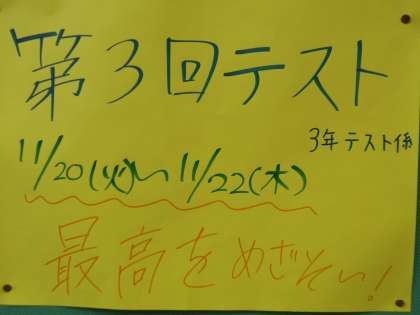 第3回テスト
3年テスト係
11/20(火)〜11/22(木)
最高をめざそい!